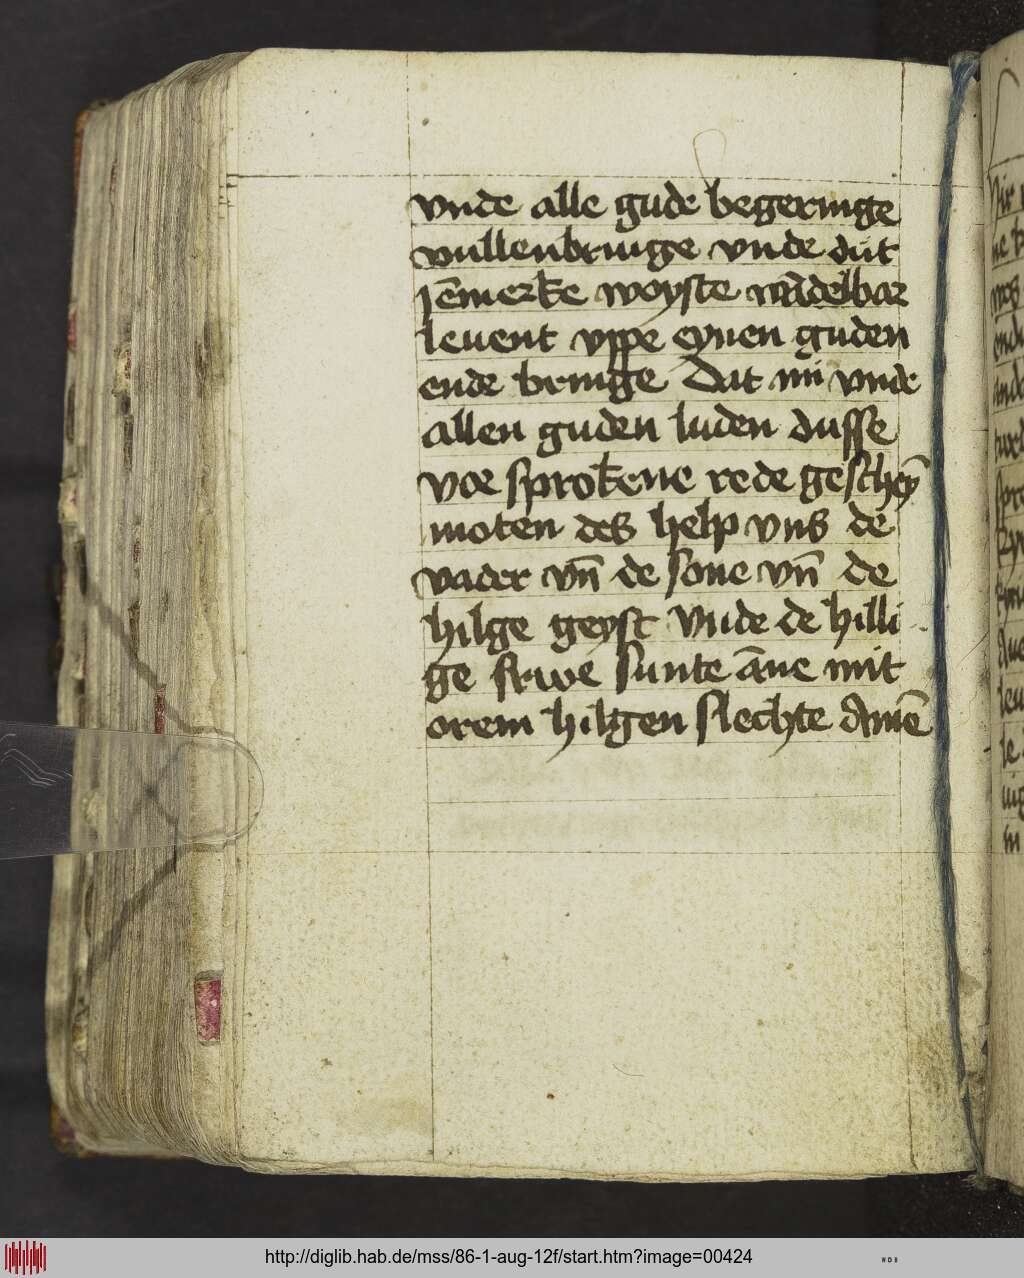 vnde alle gude begeringe
vullenbringe vnde dut
jem̄erke woyste wādelbar
leuent vppe eynen guden
ende bringe Dat mi vnde
allen guden luden dusse
vor sprokene rede geschey̅
moten des help vns de
vader vn̅ de sone vn̅ de
hilge geyst Vnde de hilli
ge frwe sunte āne mit
orem hilgen slechte Amē
http://diglib.hab.de/mss/86-1-aug-12f/start.htm?image=00424